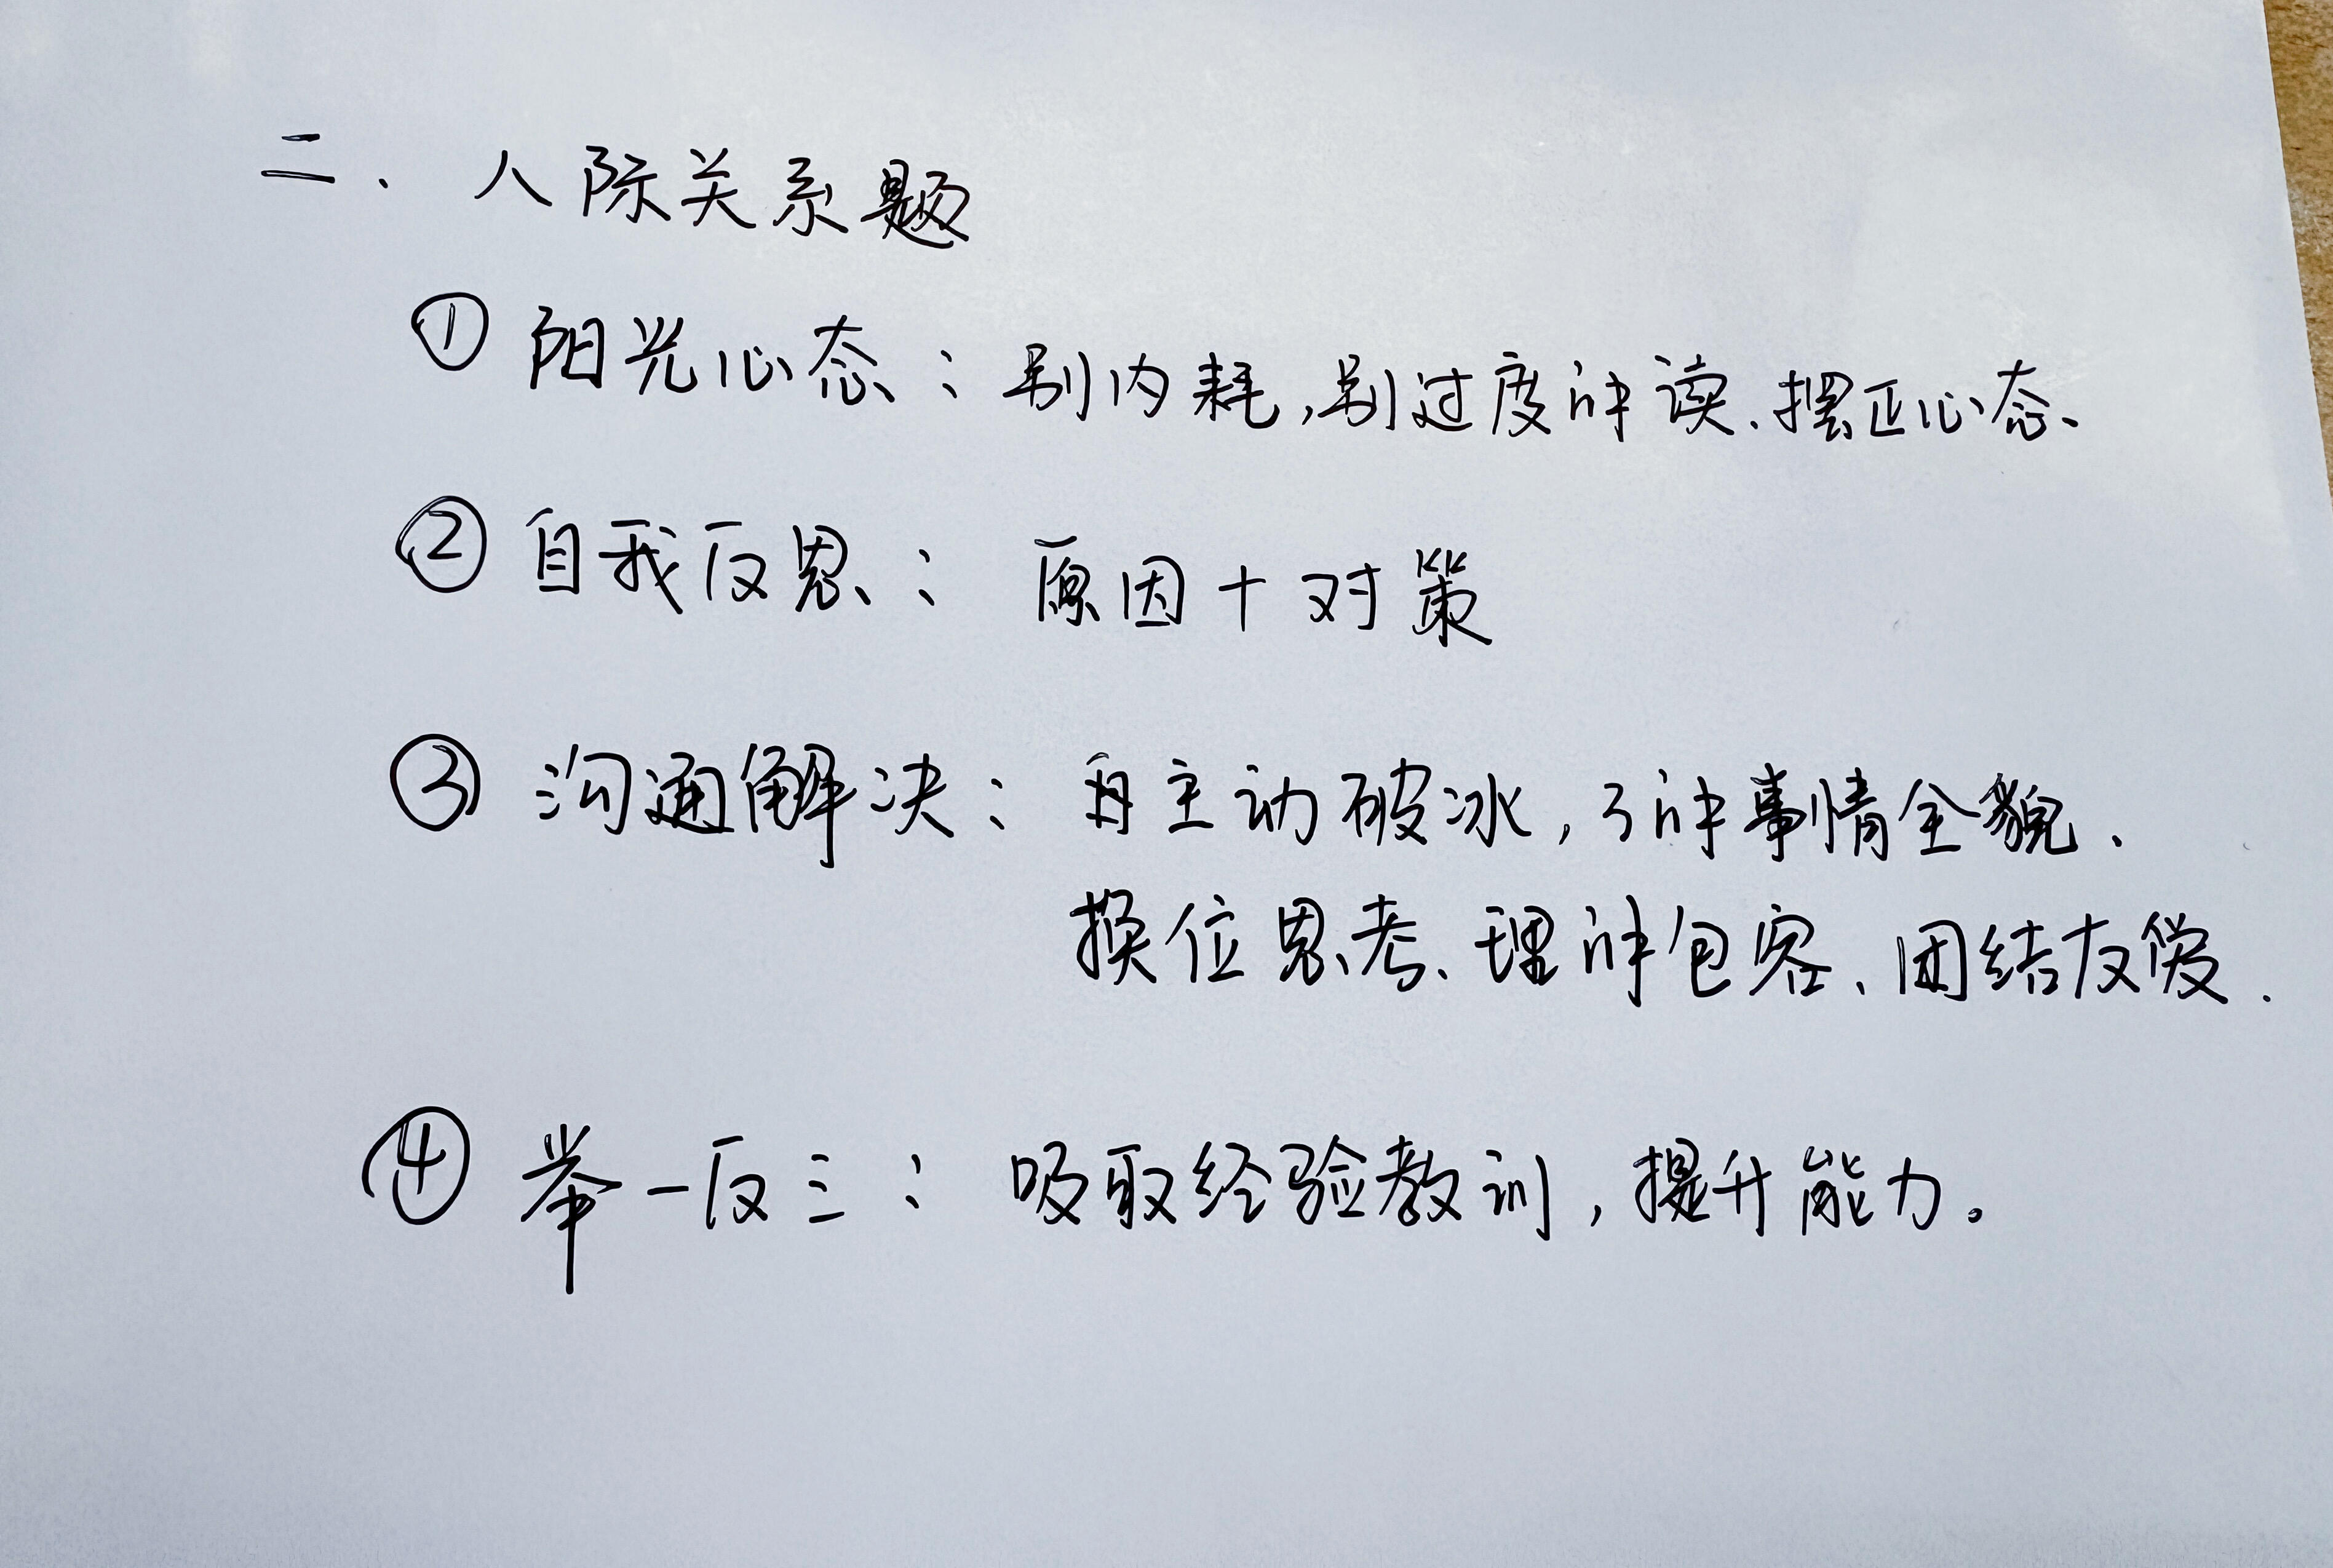 二.人际关系题
① 阳光心态：别内耗,别过度解读、摆正心态、
② 自我反思：原因+对策
③ 沟通解决：自主动破冰,了解事情全貌、
换位思考、理解包容、团结友爱.
④ 举一反三：吸取经验教训,提升能力。